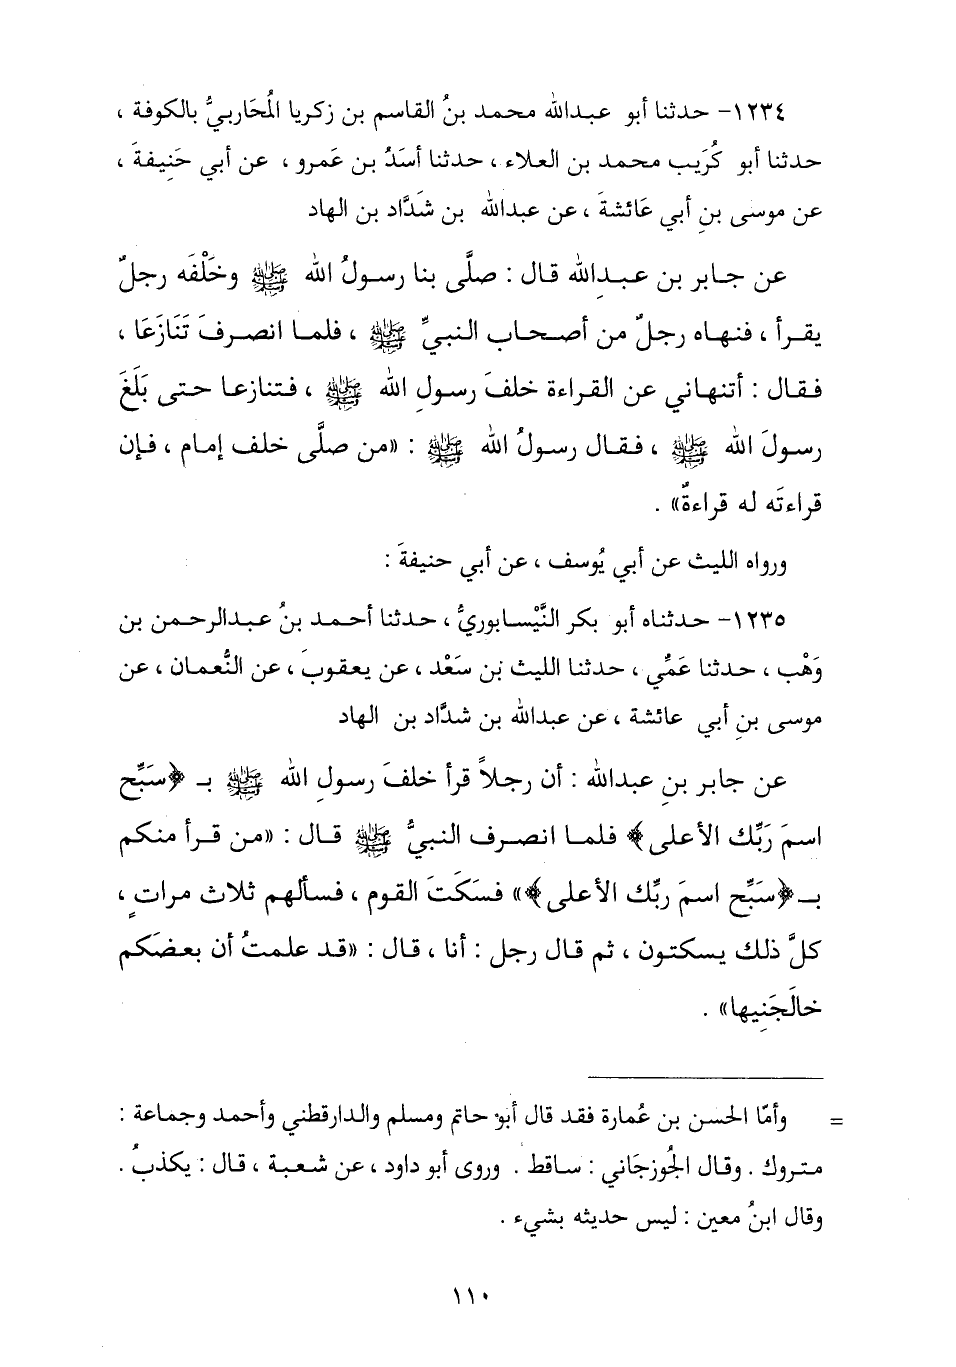 ١٢٣٤- حدثنا أبو عبدالله محمد بنُ القاسم بن زكريا المُحَاربيُّ بالكوفة ،
حدثنا أبو كُرَيب محمد بن العلاء ، حدثنا أسَدُ بن عَمرو ، عن أبي حَنِيفةَ ،
عن موسى بن أبي عَائشةَ ، عن عبدالله بن شَدَّاد بن الهاد
عن جابر بن عبدِالله قال : صلَّى بنا رسولُ الله ﷺ وخَلْفَه رجلٌ
يقرأ ، فنهاه رجلٌ من أصحاب النبيِّ ﷺ ، فلما انصرفَ تَنَازَعَا ،
فقال : أتنهاني عن القراءة خلفَ رسولِ الله ﷺ ، فتنازعا حتى بَلَغَ
رسولَ الله ﷺ ، فقال رسولُ الله ﷺ : «من صلَّى خلف إمام ، فإن
قراءتَه له قراءةٌ» .
ورواه الليث عن أبي يُوسف ، عن أبي حنيفةَ :
١٢٣٥- حدثناه أبو بكر النَّيْسابوريُّ ، حدثنا أحمد بنُ عبدالرحمن بن
وَهْب ، حدثنا عَمِّي ، حدثنا الليث بن سَعْد ، عن يعقوبَ ، عن النُّعمان ، عن
موسى بنِ أبي عائشة ، عن عبدالله بن شدَّاد بن الهاد
عن جابر بنِ عبدالله : أن رجلاً قرأ خلفَ رسولِ الله ﷺ بـ ﴿سَبِّح
اسمَ رَبِّك الأعلى﴾ فلما انصرف النبيُّ ﷺ قال : «من قرأ منكم
بـ﴿سَبِّح اسمَ ربِّك الأعلى﴾» فسَكَتَ القوم ، فسألهم ثلاث مراتٍ ،
كلَّ ذلك يسكتون ، ثم قال رجل : أنا ، قال : «قد علمتُ أن بعضَكم
خالَجَنِيها» .
= وأمّا الحسن بن عُمارة فقد قال أبو حاتم ومسلم والدارقطني وأحمد وجماعة :
متروك . وقال الجُوزجَاني : ساقط . وروى أبو داود ، عن شعبة ، قال : يكذبُ .
وقال ابنُ معين : ليس حديثه بشيء .
١١٠